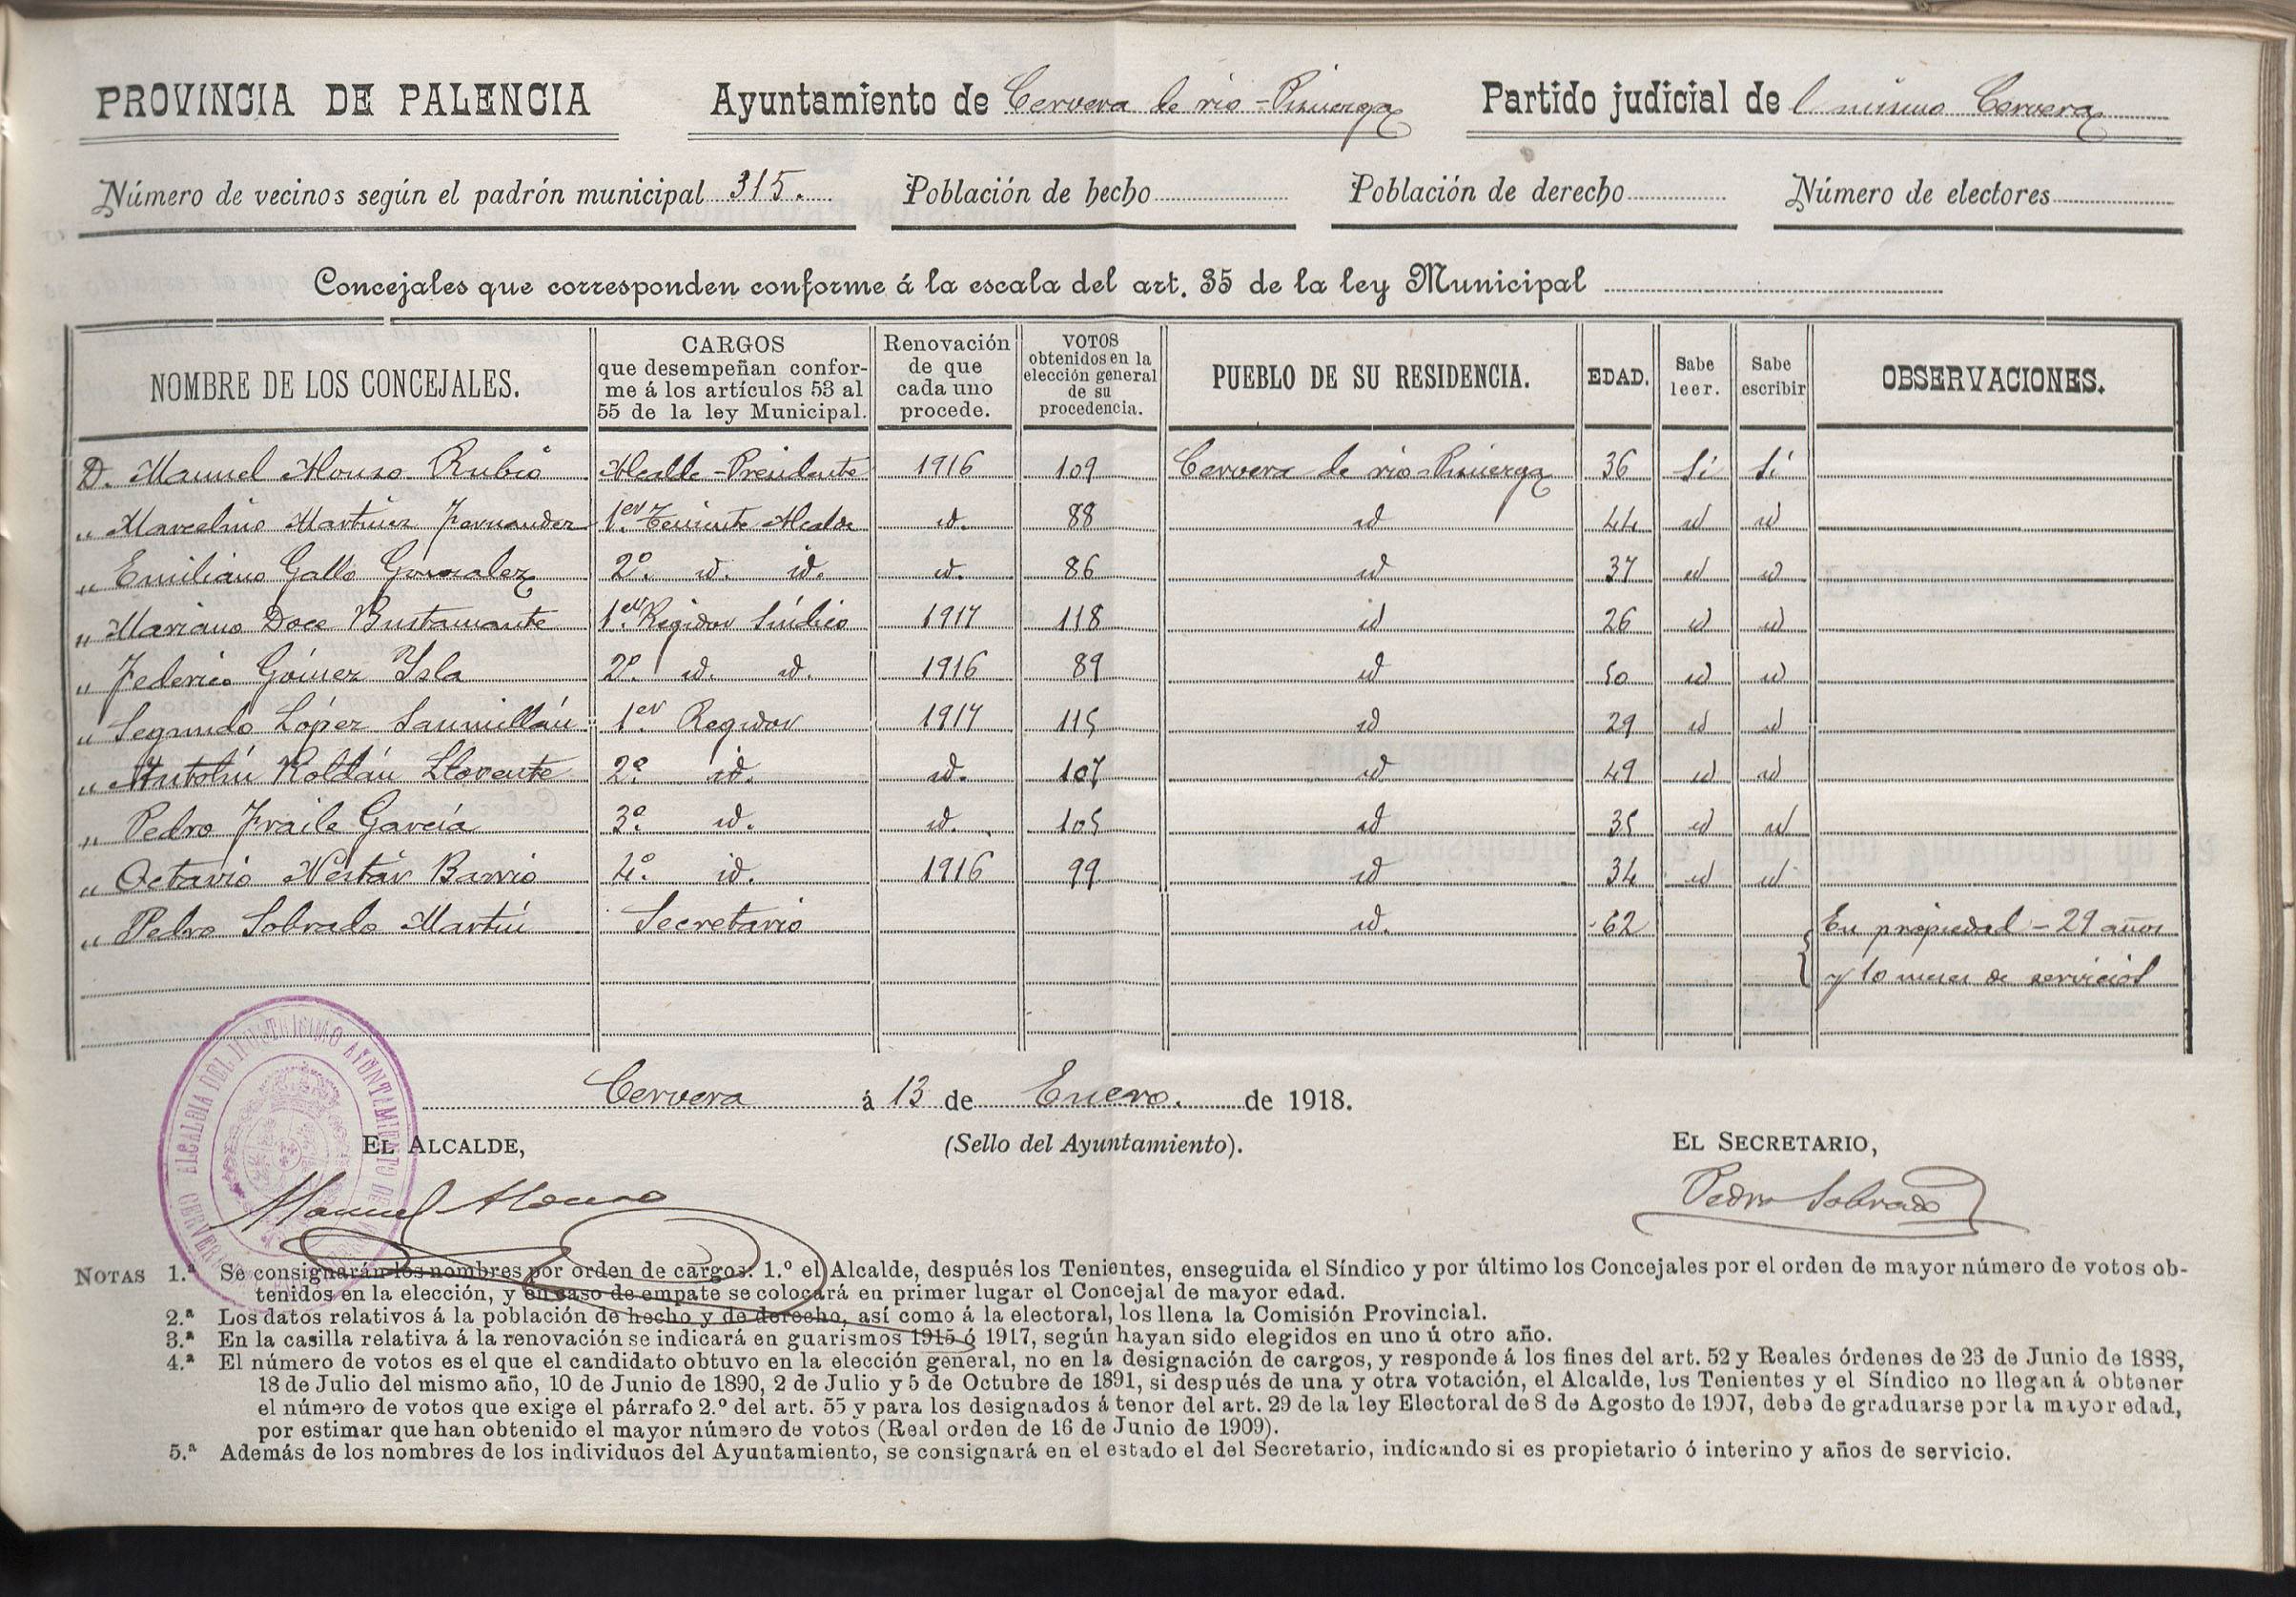 PROVINCIA DE PALENCIA Ayuntamiento de Cervera de rio-Pisuerga Partido judicial de l mismo Cervera
Número de vecinos según el padrón municipal 315. Población de hecho Población de derecho Número de electores
Concejales que corresponden conforme á la escala del art. 35 de la ley Municipal
NOMBRE DE LOS CONCEJALES. CARGOS que desempeñan confor- me á los artículos 53 al 55 de la ley Municipal. Renovación de que cada uno procede. VOTOS obtenidos en la elección general de su procedencia. PUEBLO DE SU RESIDENCIA. EDAD. Sabe leer. Sabe escribir OBSERVACIONES.
D. Manuel Alonso Rubio Alcalde-Presidente 1916 109 Cervera de rio-Pisuerga 36 Sí Sí
„ Marcelino Martinez Fernandez 1er. Teniente Alcalde id. 88 id 44 id id
„ Emiliano Gallo Gonzalez 2º. id. id. id. 86 id 37 id id
„ Mariano Doce Bustamante 1er. Regidor Síndico 1917 118 id 26 id id
„ Federico Gómez Isla 2º. id. id. 1916 89 id 50 id id
„ Segundo López Sanmillán 1er Regidor 1917 115 id 29 id id
„ Antolín Roldán Llorente 2º. id. id. 107 id 49 id id
„ Pedro Fraile García 3º. id. id. 105 id 35 id id
„ Octavio Nestar Barrio 4º. id. 1916 99 id 34 id id
„ Pedro Sobrado Martín Secretario id. 62 En propiedad - 29 años
y 10 meses de servicios
Cervera á 13 de Enero. de 1918.
EL ALCALDE, (Sello del Ayuntamiento). EL SECRETARIO,
Manuel Alonso Pedro Sobrado
ALCALDIA DEL ILUSTRISIMO AYUNTAMIENTO DE CERVERA
NOTAS 1.ª Se consignarán los nombres por orden de cargos: 1.º el Alcalde, después los Tenientes, enseguida el Síndico y por último los Concejales por el orden de mayor número de votos ob-
tenidos en la elección, y en caso de empate se colocará en primer lugar el Concejal de mayor edad.
2.ª Los datos relativos á la población de hecho y de derecho, así como á la electoral, los llena la Comisión Provincial.
3.ª En la casilla relativa á la renovación se indicará en guarismos 1915 ó 1917, según hayan sido elegidos en uno ú otro año.
4.ª El número de votos es el que el candidato obtuvo en la elección general, no en la designación de cargos, y responde á los fines del art. 52 y Reales órdenes de 23 de Junio de 1888,
18 de Julio del mismo año, 10 de Junio de 1890, 2 de Julio y 5 de Octubre de 1891, si después de una y otra votación, el Alcalde, los Tenientes y el Síndico no llegan á obtener
el número de votos que exige el párrafo 2.º del art. 55 y para los designados á tenor del art. 29 de la ley Electoral de 8 de Agosto de 1907, debe de graduarse por la mayor edad,
por estimar que han obtenido el mayor número de votos (Real orden de 16 de Junio de 1909).
5.ª Además de los nombres de los individuos del Ayuntamiento, se consignará en el estado el del Secretario, indicando si es propietario ó interino y años de servicio.